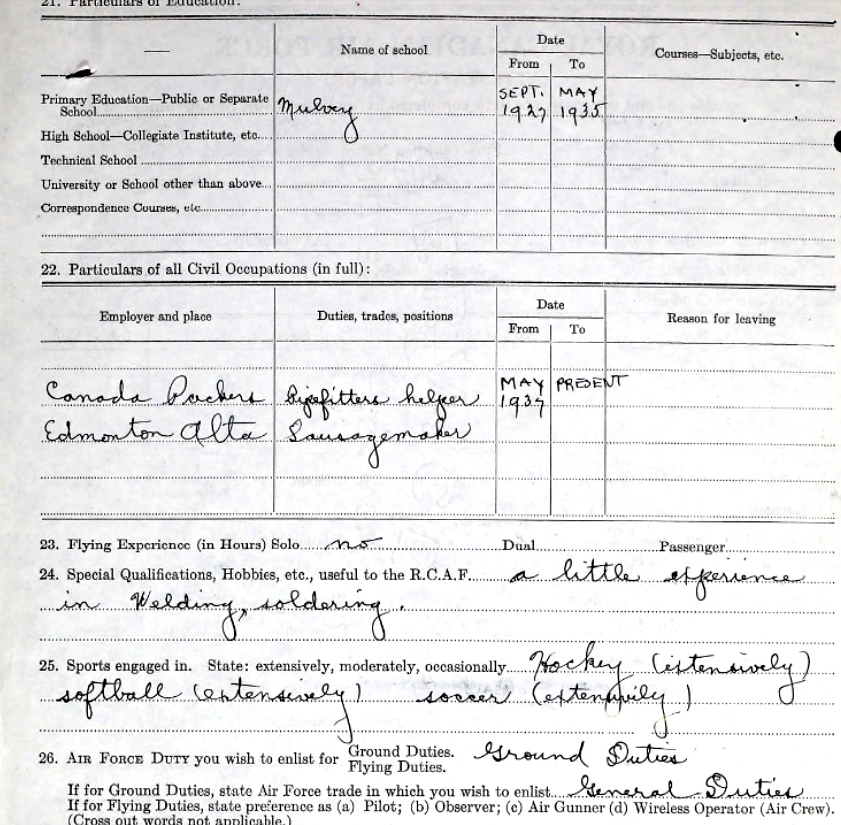 21. Particulars of Education:
Name of school
Date
From To
Courses—Subjects, etc.
Primary Education—Public or Separate
School Mulvey SEPT. 1927 MAY 1935
High School—Collegiate Institute, etc.
Technical School
University or School other than above
Correspondence Courses, etc.
22. Particulars of all Civil Occupations (in full):
Employer and place
Duties, trades, positions
Date
From To
Reason for leaving
Canada Packers pipefitters helper MAY 1937 PRESENT
Edmonton Alta Sausagemaker
23. Flying Experience (in Hours) Solo no Dual Passenger
24. Special Qualifications, Hobbies, etc., useful to the R.C.A.F. a little experience
in Welding, soldering.
25. Sports engaged in. State: extensively, moderately, occasionally Hockey (extensively)
softball (extensively) soccer (extensivily)
26. AIR FORCE DUTY you wish to enlist for Ground Duties. Ground Duties
Flying Duties.
If for Ground Duties, state Air Force trade in which you wish to enlist General Duties
If for Flying Duties, state preference as (a) Pilot; (b) Observer; (c) Air Gunner (d) Wireless Operator (Air Crew).
(Cross out words not applicable.)